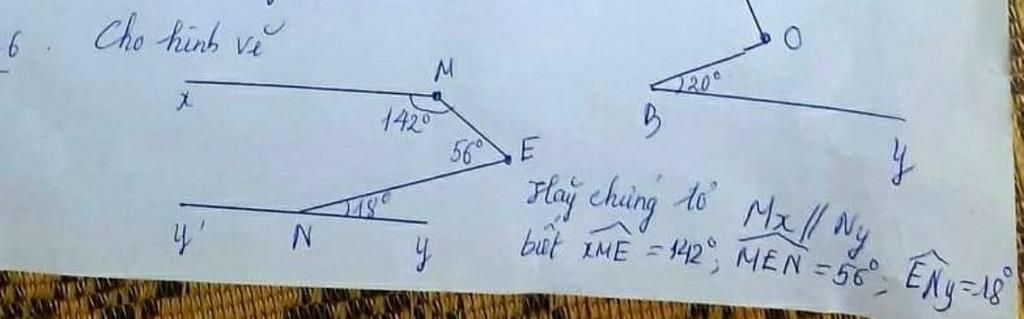 6. Cho hình vẽ
O
M
x
142°
120°
B
56°
E
y
18°
y'
N
y
Hãy chứng tỏ Mx // Ny
biết xME = 142°; MEN = 56°; ENy = 18°